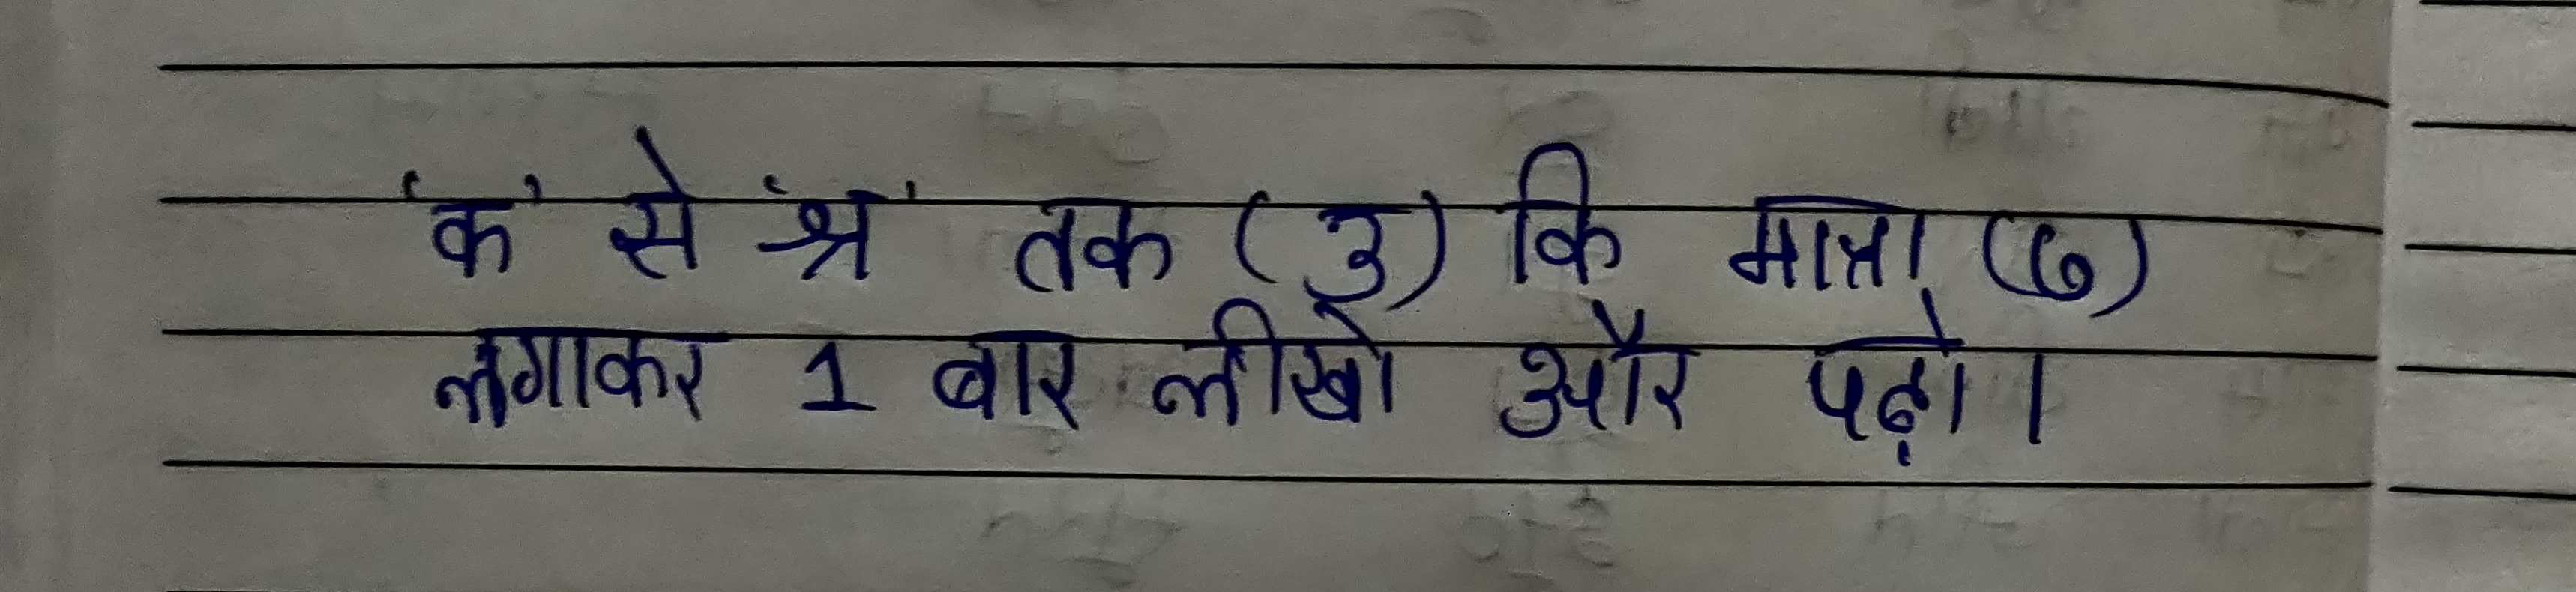 'क' से 'श्र' तक (उ) कि मात्रा (ु)
लगाकर 1 बार लीखो और पढ़ो।